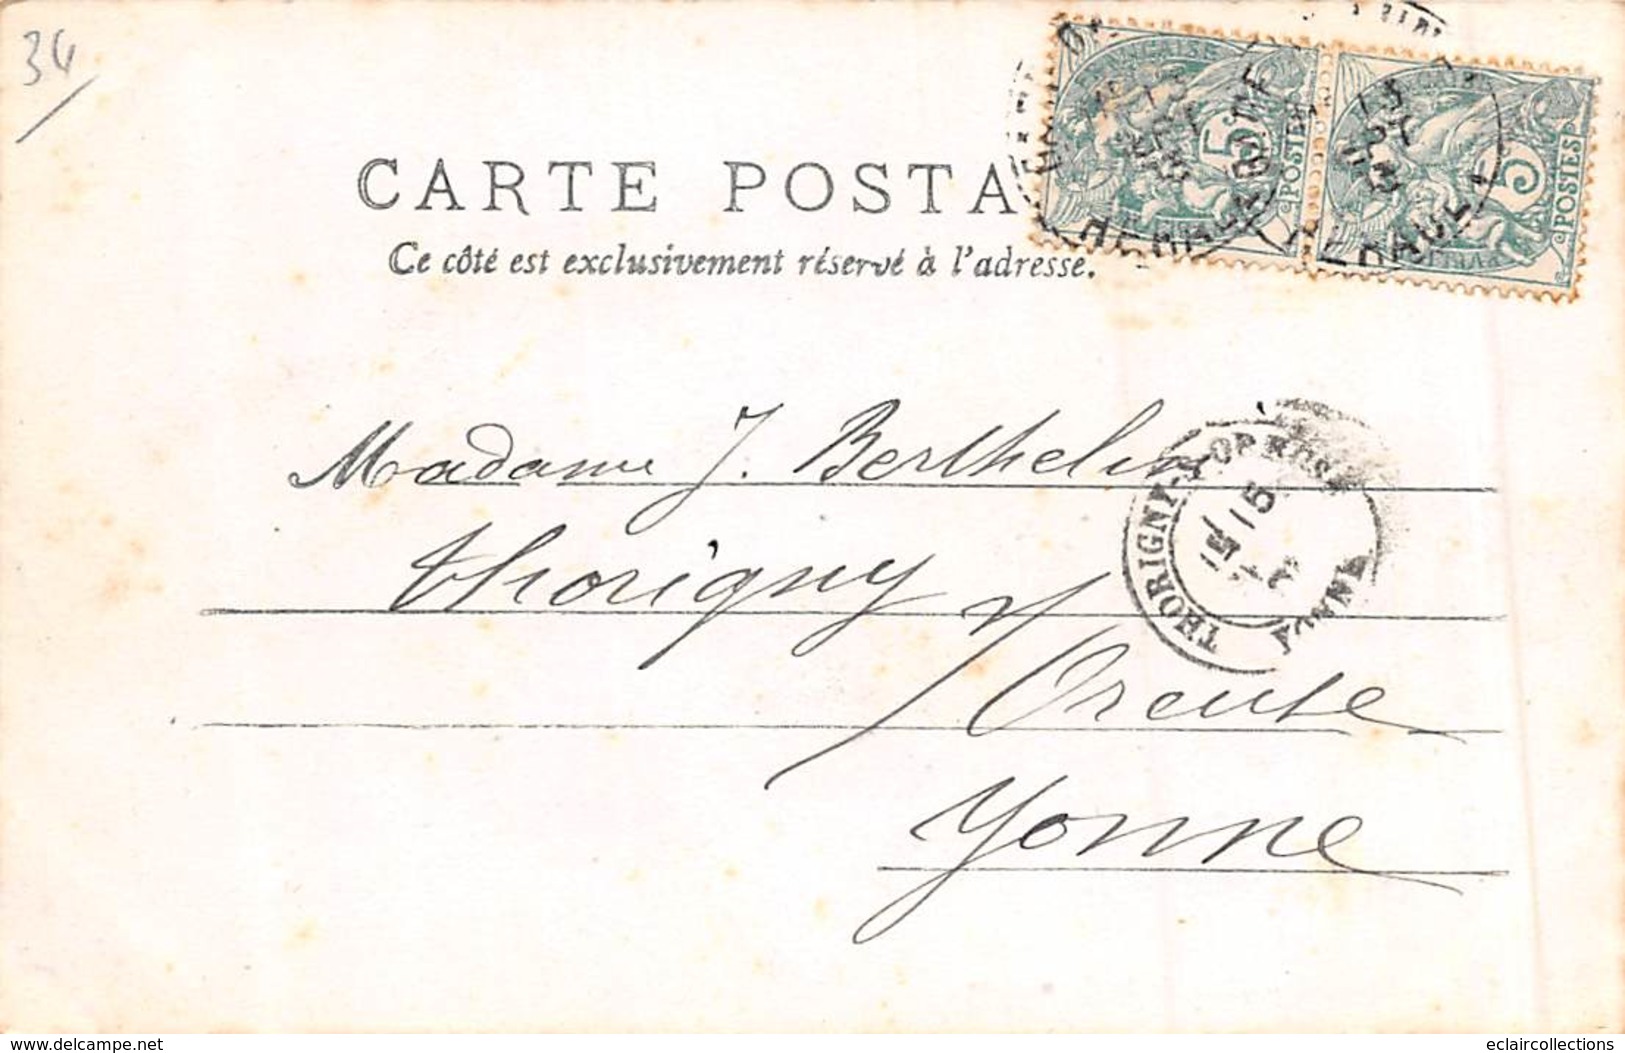 34
CARTE POSTA
Ce côté est exclusivement réservé à l'adresse.
5 POSTES
5 POSTES
HERAULT
Madame J. Berthelin
Thorigny s/
Oreuse
Yonne
THORIGNY-S-OREUSE
15
YONNE
www.delcampe.net
eclaircollections